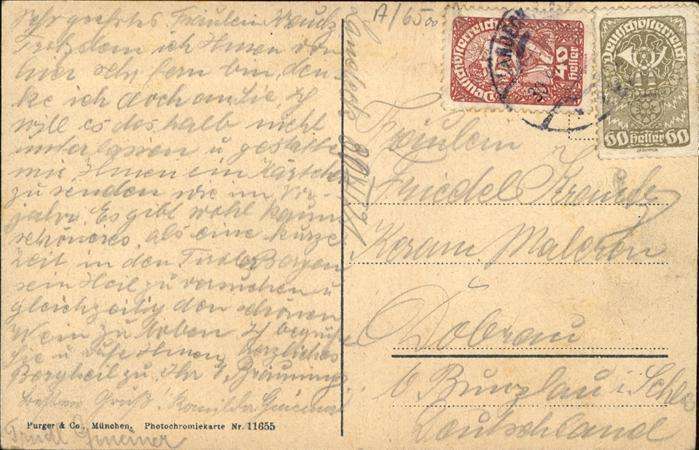 Sehr geehrtes Fräulein
Trotzdem ich Ihnen von
hier sehr fern bin, den-
ke ich doch an Sie. Ich
will es deshalb nicht
unterlassen u gestatte
mir Ihnen ein Kärtchen
zu senden wie im Vor-
jahre. Es gibt wohl kaum
schöneres als eine kurze
Zeit in den Tiroler Bergen
sein Heil zu versuchen u
gleichzeitig den schönen
Wein zu Ich begrüße
Sie u rufe Ihnen herzliches
Bergheil zu. Ihr G. Bräuning
Gruß
Purger & Co., München. Photochromiekarte Nr. 11655
Gmeiner
A/65
Deutschösterreich
40
Heller
Deutschösterreich
60 Heller 60
Landeck
Fräulein
Friedel
Keram. Malerin
Dobrau
b. Bunzlau i. Schls
Deutschland